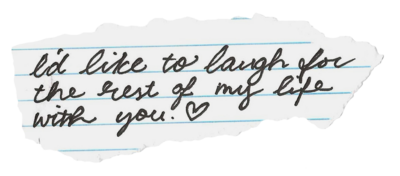 I'd like to laugh for
the rest of my life
with you. ♡